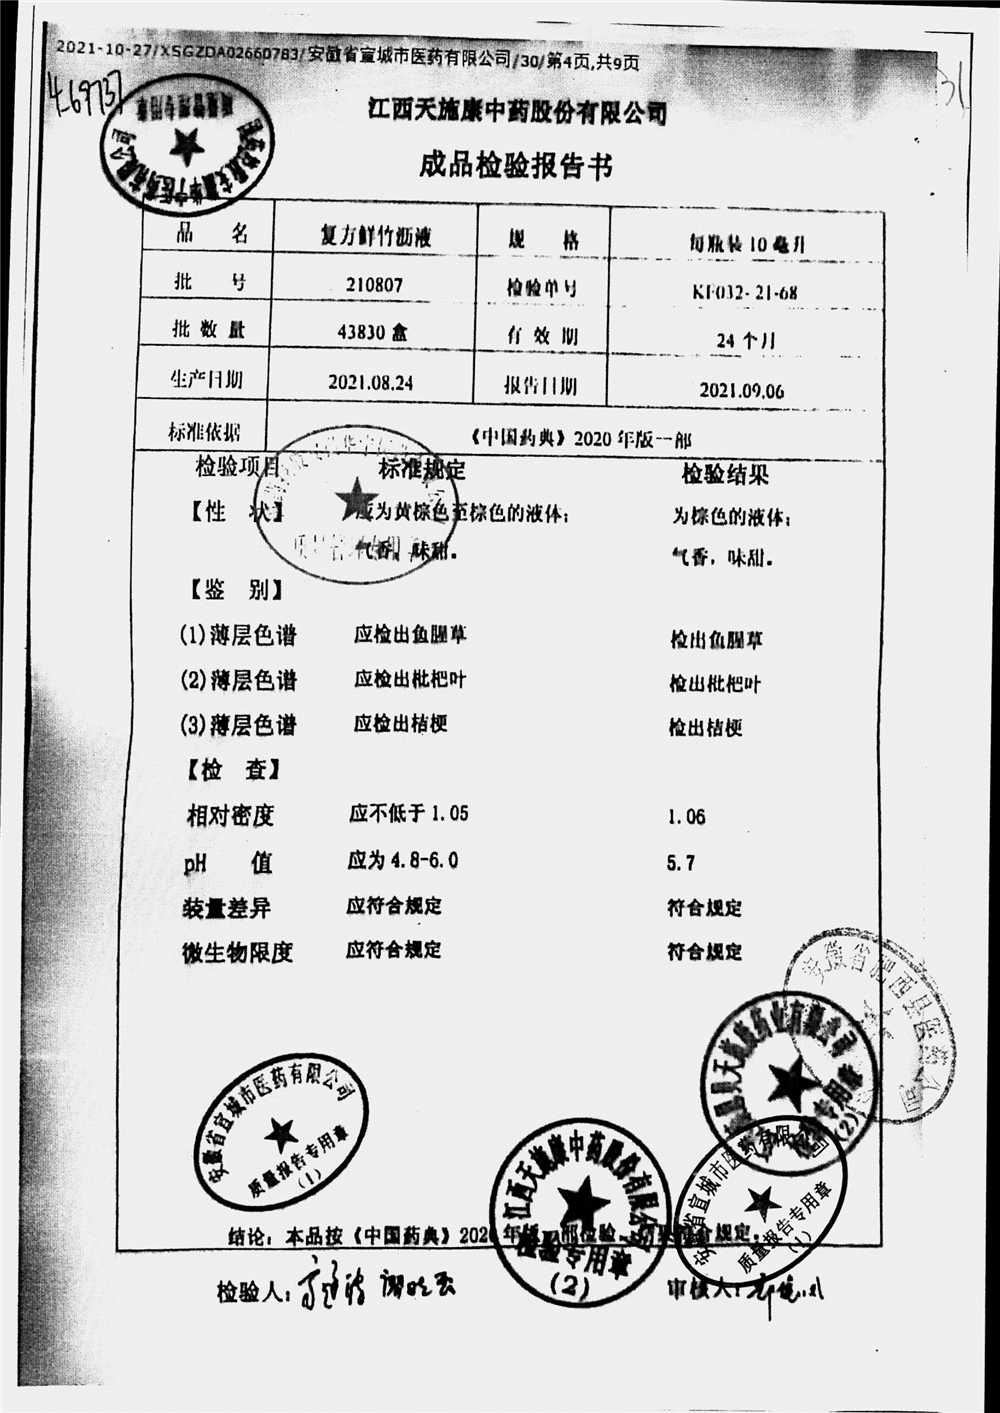 2021-10-27/XSGZDA02660783/安徽省宣城市医药有限公司/30/第4页,共9页
469737
31
江西天施康中药股份有限公司
成品检验报告书
品 名 复方鲜竹沥液 规 格 每瓶装10毫升
批 号 210807 检验单号 KF032-21-68
批数量 43830盒 有效期 24个月
生产日期 2021.08.24 报告日期 2021.09.06
标准依据 《中国药典》2020年版一部
检验项目 标准规定 检验结果
【性 状】 应为黄棕色至棕色的液体; 为棕色的液体;
气香,味甜。 气香,味甜。
【鉴 别】
(1)薄层色谱 应检出鱼腥草 检出鱼腥草
(2)薄层色谱 应检出枇杷叶 检出枇杷叶
(3)薄层色谱 应检出桔梗 检出桔梗
【检 查】
相对密度 应不低于1.05 1.06
pH 值 应为4.8-6.0 5.7
装量差异 应符合规定 符合规定
微生物限度 应符合规定 符合规定
安徽省肥西县医药公司
安徽省宣城市医药有限公司
质量报告专用章
(1)
江西天施康中药股份有限公司
检验专用章
(2)
天施康药业有限公司
专用章
(2)
安徽省宣城市医药有限公司
质量报告专用章
(1)
结论:本品按《中国药典》2020年版一部检验,结果符合规定。
检验人: 审核人: